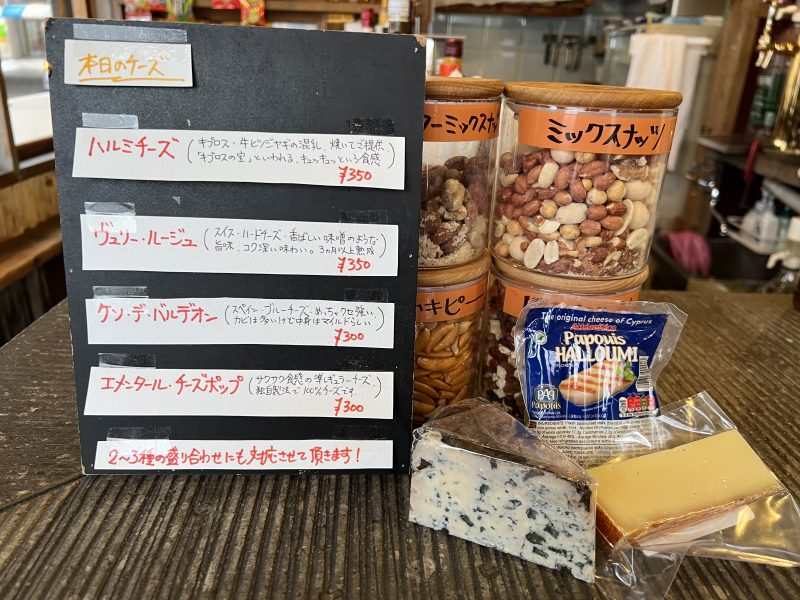 本日のチーズ
ハルミチーズ
(キプロス・牛ヒツジヤギの混乳、焼いてご提供
「キプロスの宝」といわれる、キュッキュッという食感)
¥350
ヴュリー・ルージュ
(スイス・ハードチーズ・香ばしい味噌のような
旨味、コク深い味わい。3ヵ月以上熟成)
¥350
ケソ・デ・バルデオン
(スペイン・ブルーチーズ・めっちゃクセ強い、
カビは多いけど中身はマイルドらしい)
¥300
エメンタール・チーズポップ
(サクサク食感の準レギュラーチーズ
独自製法で100%チーズです。)
¥300
2〜3種の盛り合わせにも対応させて頂きます!
ターミックスナッ
ミックスナッツ
キピー
The original cheese of Cyprus
Papouis
HALLOUMI
Papouis